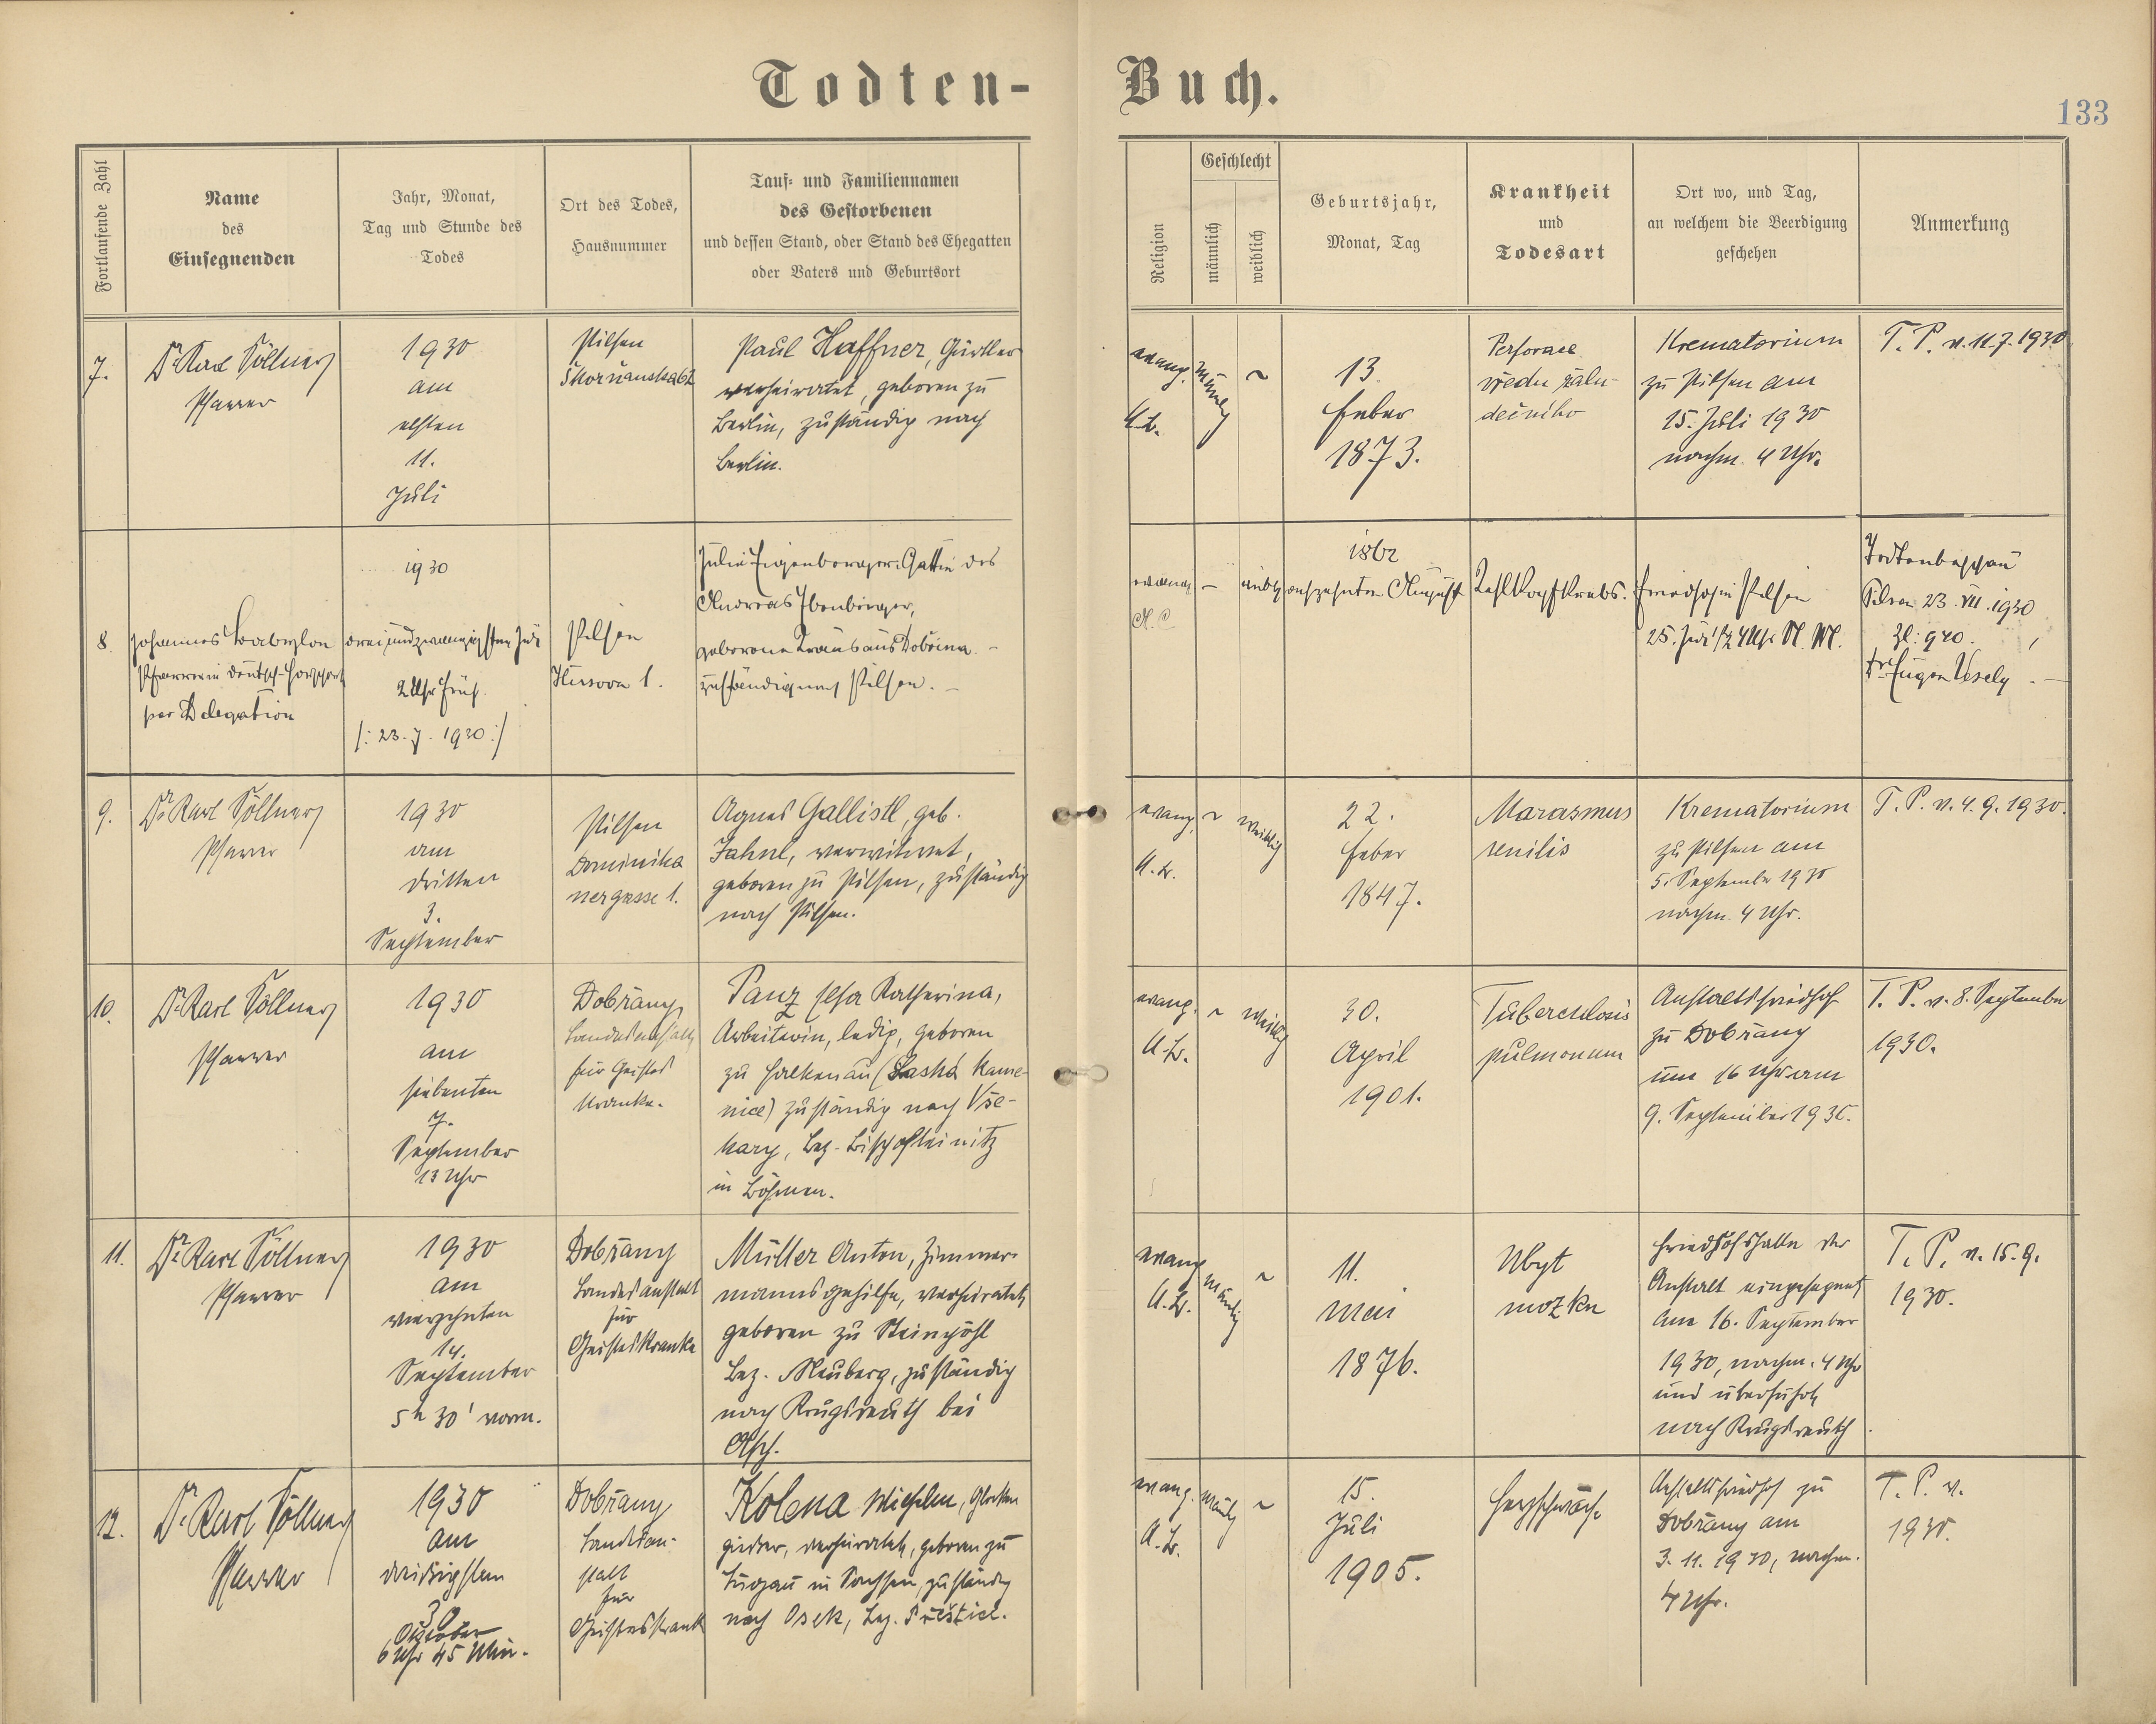 Todten-Buch.
133
Fortlaufende Zahl
Name
des
Einsegnenden
Jahr, Monat,
Tag und Stunde des
Todes
Ort des Todes,
Hausnummer
Tauf- und Familiennamen
des Gestorbenen
und dessen Stand, oder Stand des Ehegatten
oder Vaters und Geburtsort
Religion
Geschlecht
männlich
weiblich
Geburtsjahr,
Monat, Tag
Krankheit
und
Todesart
Ort wo, und Tag,
an welchem die Beerdigung
geschehen
Anmerkung
7.
Dr Karl Söllner
Pfarrer
1930
am
elften
11.
Juli
Pilsen
Paul Haffner, Gürtler
verheiratet, geboren zu
Berlin, zuständig nach
Berlin.
evang.
A.B.
männl
~
13.
Feber
1873.
Perforace
vředu žalu-
dečního
Krematorium
zu Pilsen am
15. Juli 1930
nachm. 4 Uhr.
T. P. v. 11.7.1930
8.
Johannes Babylon
Pfarrer in Deutsch-
per Delegation
1930
dreiundzwanzigsten Juli
2 Uhr früh.
/: 23. 7. 1930 :/
Pilsen
Husova 1.
Julie Eigenberger, Gattin des
Andreas
geborene Kraus aus Dobřína. –
zuständig nach Pilsen. –
evang
A.C.
–
weibl
1862
August
Kehlkopfkrebs.
Friedhof in Pilsen
25. Juli 1/2 4 Uhr N. M.
Todtenbeschau
Pilsen 23. VII. 1930
Zl: 920.
Dr Eugen Vesely. –
9.
Dr Karl Söllner
Pfarrer
1930
am
dritten
3.
September
Pilsen
Dominika
nergasse 1.
Agnes Gallistl, geb.
Jahnl, verwitwet,
geboren zu Pilsen, zuständig
nach Pilsen.
evang.
A.B.
~
weiblich
22.
Feber
1847.
Marasmus
senilis
Krematorium
zu Pilsen am
5. September 1930
nachm. 4 Uhr.
T. P. v. 4. 9. 1930.
10.
Dr Karl Söllner
Pfarrer
1930
am
siebenten
7.
September
13 Uhr
Dobřany
Landesanstalt
für Geistes
kranke.
Panz Katherina,
Arbeiterin, ledig, geboren
zu Falkenau (Česká Kame-
nice) zuständig nach Vše-
kary, Bez. Bischofteinitz
in Böhmen.
evang.
A.B.
~
weiblich
30.
April
1901.
Tuberculosis
pulmonum
Anstaltsfriedhof
zu Dobřany
um 16 Uhr am
9. September 1930.
T. P. v. 8. September
1930.
11.
Dr Karl Söllner
Pfarrer
1930
am
vierzehnten
14.
September
5h 30' vorm.
Dobřany
Landesanstalt
für
Geisteskranke
Müller Anton, Zimmer-
mannsgehilfe, verheiratet,
geboren zu Steinpöhl
Bez. Neuberg, zuständig
nach Krugsreuth bei
Asch.
evang
A.B.
männlich
~
11.
Mai
1876.
Ubyt
mozku
Friedhofshalle der
Anstalt eingesegnet
am 16. September
1930, nachm. 4 Uhr
und überführt
nach Krugsreuth
T. P. v. 15. 9.
1930.
12.
Dr Karl Söllner
Pfarrer
1930
am
dreißigsten
30
Oktober
6 Uhr 45 Min.
Dobřany
Landesan-
stalt
für
Geisteskrank
Kolena Wilhelm, Glocken
gießer, verheiratet, geboren zu
Lugau in Sachsen, zuständig
nach Osek, Bez. Přeštice.
evang.
A.B.
männl
~
15.
Juli
1905.
Herzschwäche
Anstaltsfriedhof zu
Dobřany am
3. 11. 1930, nachm.
4 Uhr.
T. P. v.
1930.